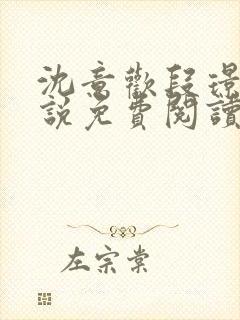 沈意歡段璟
說免費閱讀
左宗棠